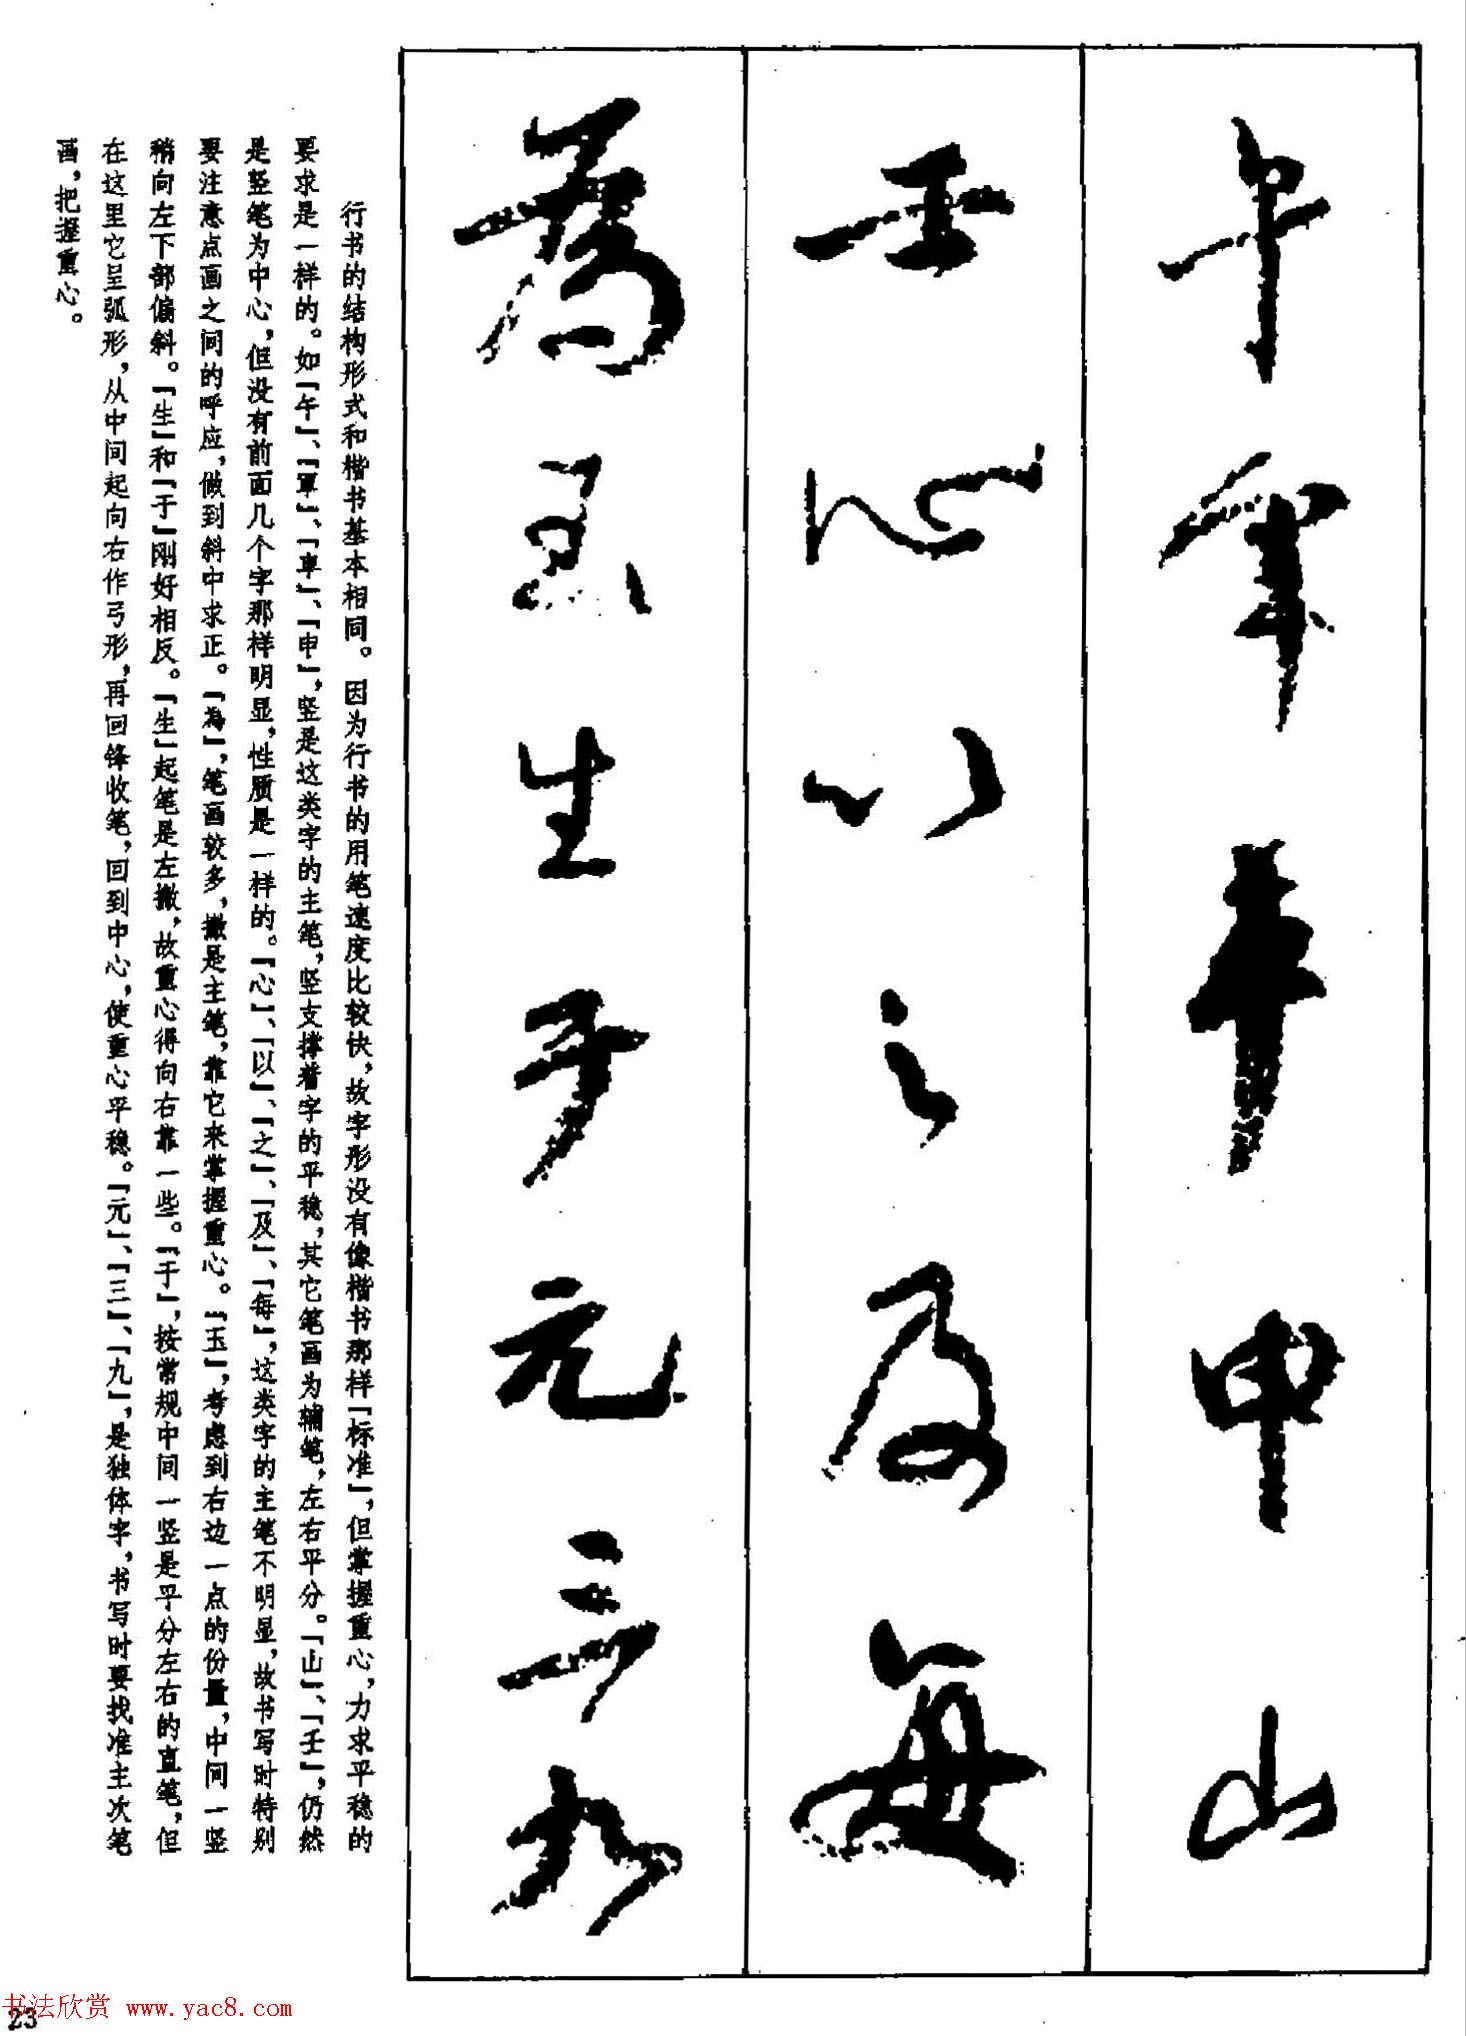 午軍車申山
壬心以之及每
為玉生于元三九
行书的结构形式和楷书基本相同。因为行书的用笔速度比较快,故字形没有像楷书那样「标准」,但掌握重心,力求平稳的
要求是一样的。如「午」、「軍」、「車」、「申」,竖是这类字的主笔,竖支撑着字的平稳,其它笔画为辅笔,左右平分。「山」、「壬」,仍然
是竖笔为中心,但没有前面几个字那样明显,性质是一样的。「心」、「以」、「之」、「及」、「每」,这类字的主笔不明显,故书写时特别
要注意点画之间的呼应,做到斜中求正。「為」,笔画较多,撇是主笔,靠它来掌握重心。「玉」,考虑到右边一点的份量,中间一竖
稍向左下部偏斜。「生」和「于」刚好相反。「生」起笔是左撇,故重心得向右靠一些。「于」,按常规中间一竖是平分左右的直笔,但
在这里它呈弧形,从中间起向右作弓形,再回锋收笔,回到中心,使重心平稳。「元」、「三」、「九」,是独体字,书写时要找准主次笔
画,把握重心。
书法欣赏 www.yac8.com
23